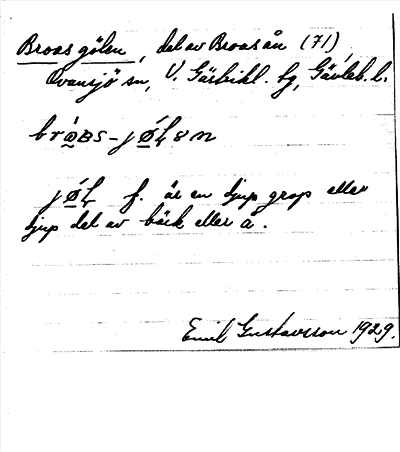 Broas gölen, del av Broasån (71),
Ovansjö sn, V. Gästrikl. hg, Gävleb. l.
f. är en djup grop eller
djup del av bäck eller å.
Emil Gustavsson 1929.